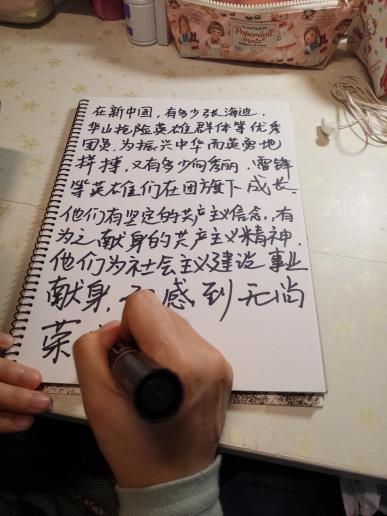 Paperdoll
mate
在新中国，有多少张海迪、
华山抢险英雄群体等优秀
团员，为振兴中华而英勇地
拼搏，又有多少向秀丽、雷锋
等英雄们在团旗下成长。
他们有坚定的共产主义信念，有
为之献身的共产主义精神，
他们为社会主义建设事业
献身，而感到无尚
荣